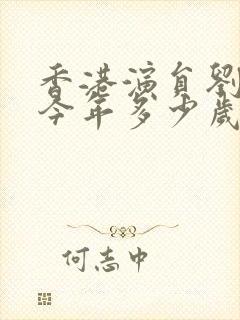 香港演員劉
今年多少歲
何志中